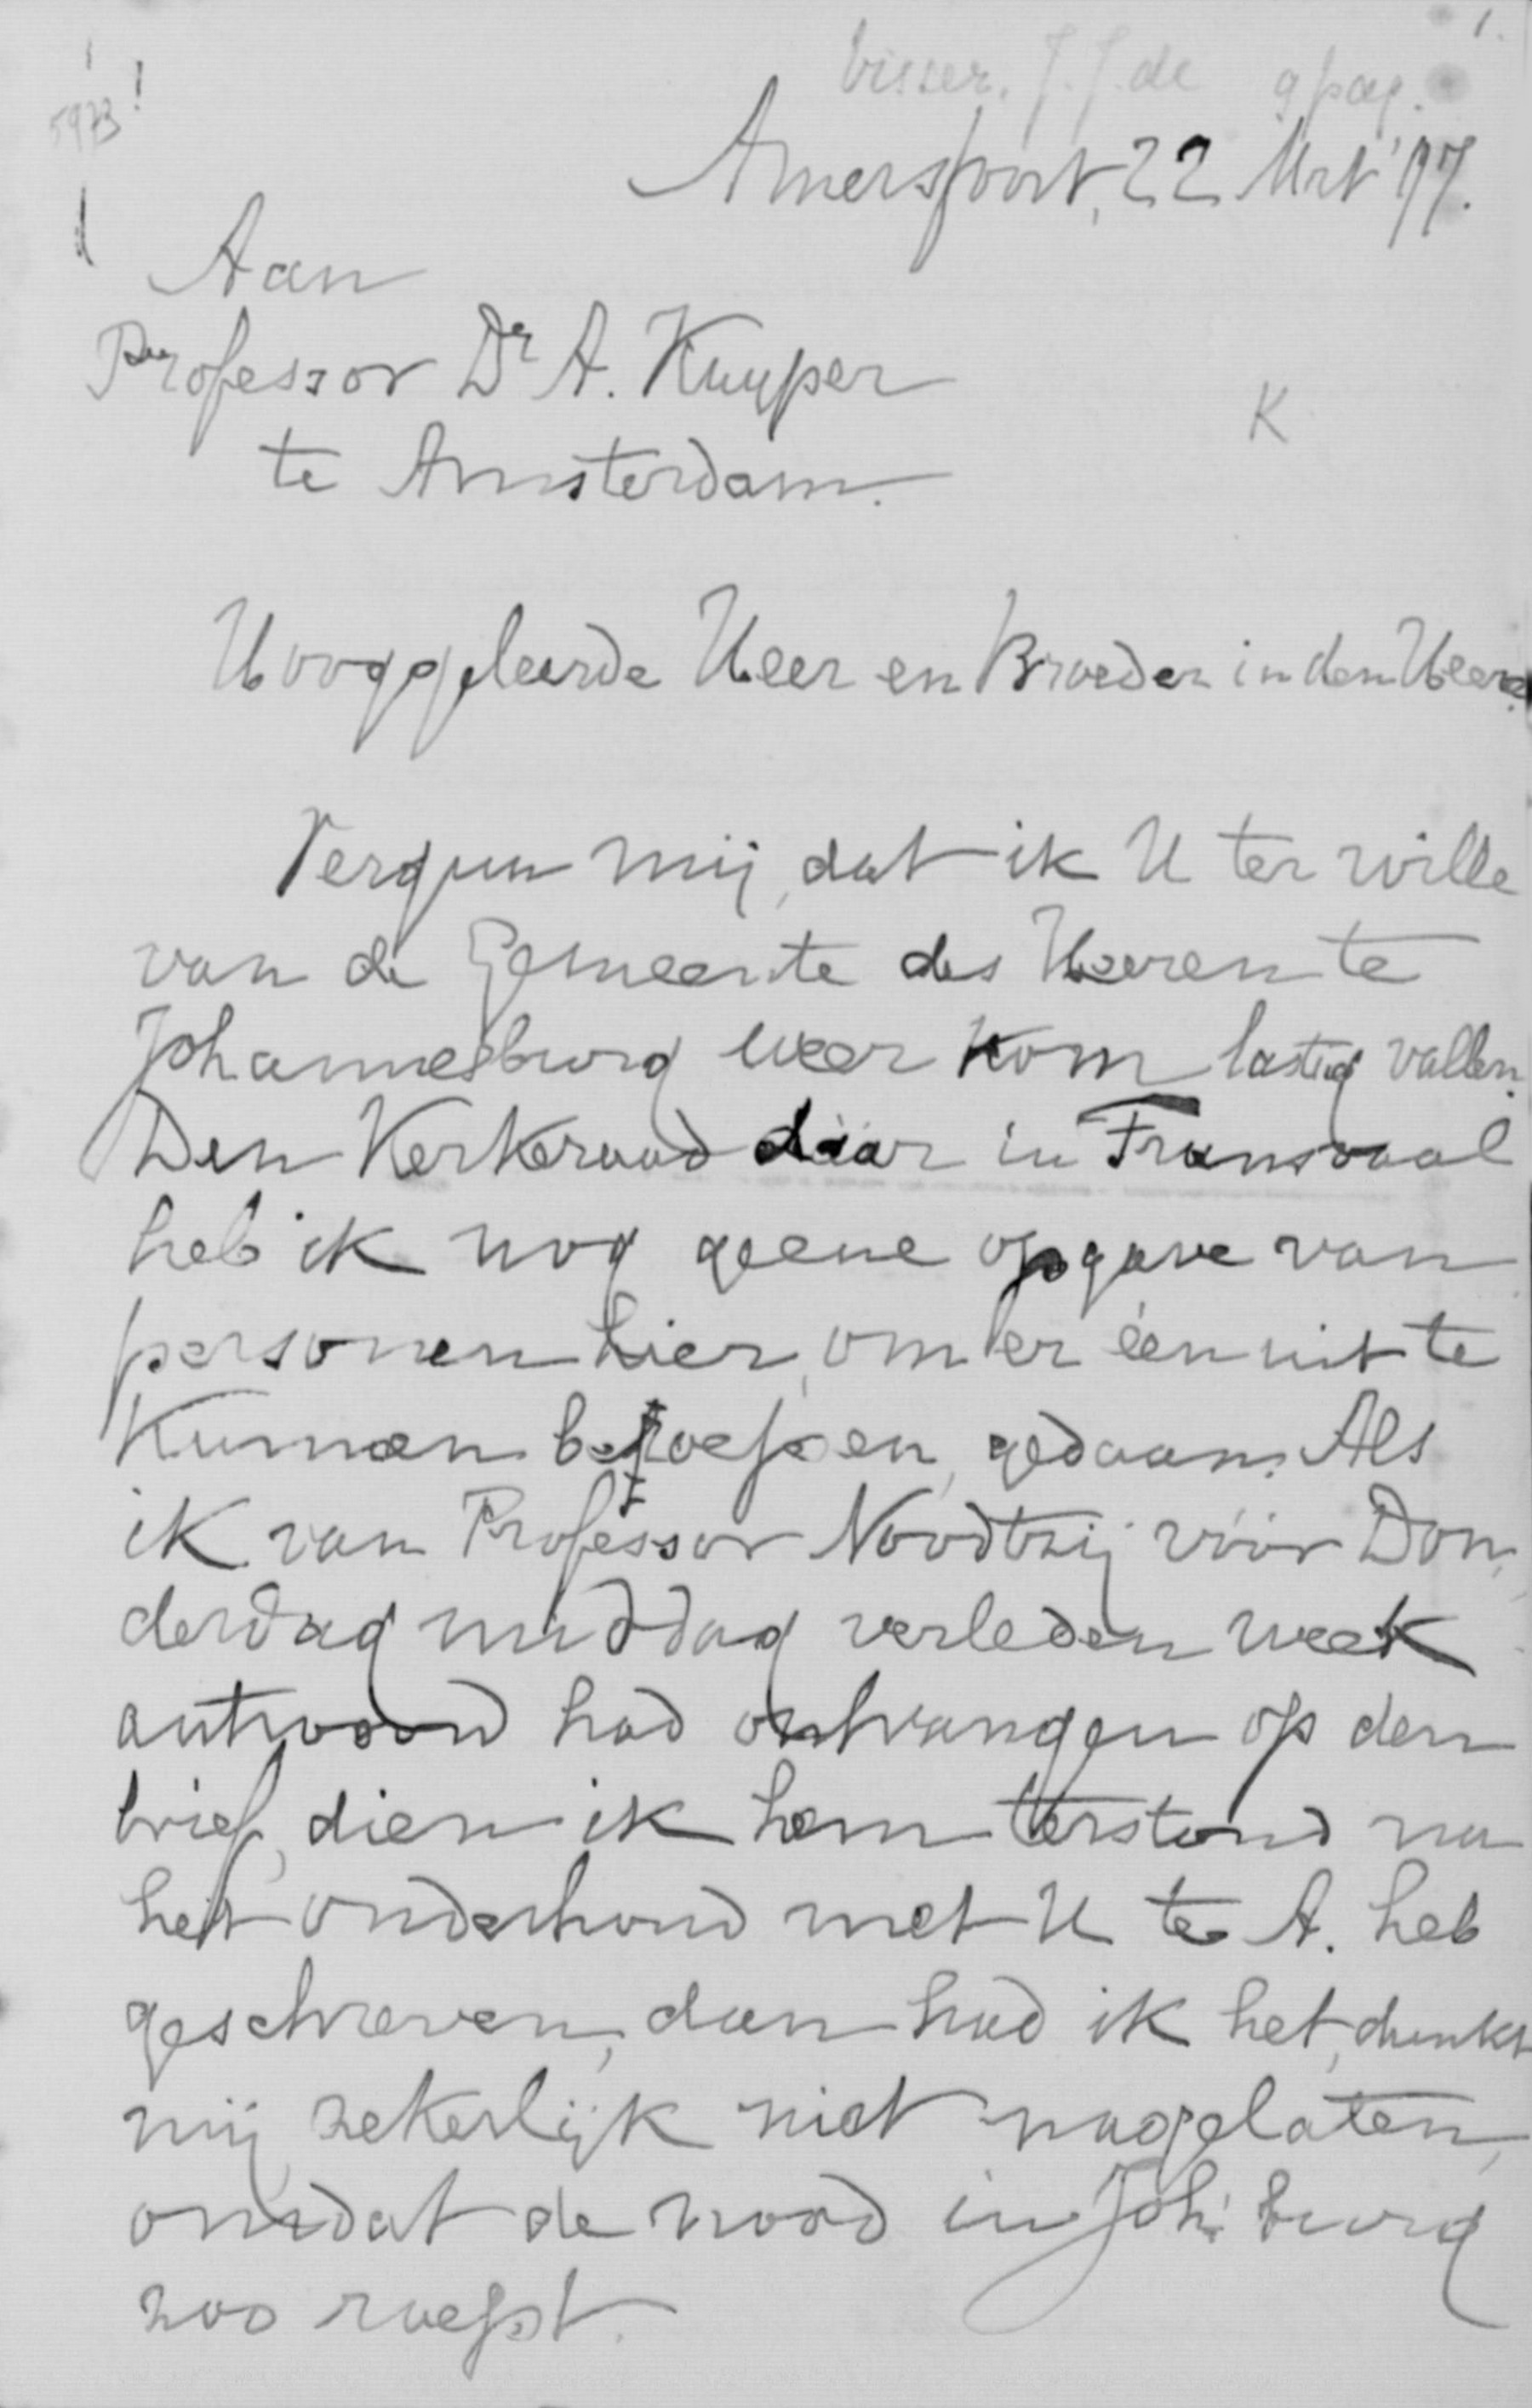 1.
Visser, J. J. de 9 pag.
5973
Amersfoort, 22 Mrt '97.
Aan
Professor Dr A. Kuyper
K
te Amsterdam.
Hooggeleerde Heer en Broeder in den Heere.
Vergun mij, dat ik U ter wille
van de Gemeente des Heeren te
Johannesburg weer kom lastig vallen.
Den Kerkeraad dáár in Transvaal
heb ik nog geene opgave van
personen hier, om er één uit te
kunnen beroepen, gedaan. Als
ik van Professor Noodtzij vóór Don-
derdag middag verleden week
antwoord had ontvangen op den
brief, dien ik hem terstond na
het onderhoud met U te A. heb
geschreven, dan had ik het, dunkt
mij, zekerlijk niet nagelaten,
omdat de nood in Joh.burg
zoo roept.